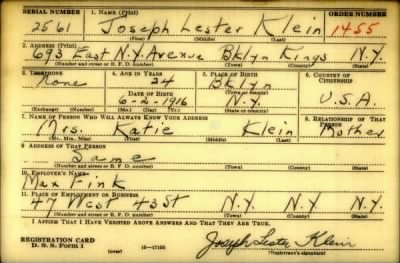 SERIAL NUMBER 1. NAME (Print) ORDER NUMBER
2561 Joseph Lester Klein 1455
(First) (Middle) (Last)
2. ADDRESS (Print)
693 East N.Y. Avenue Bklyn Kings N.Y.
(Number and street or R. F. D. number) (Town) (County) (State)
3. TELEPHONE 4. AGE IN YEARS 5. PLACE OF BIRTH 6. COUNTRY OF CITIZENSHIP
None 24 Bklyn
DATE OF BIRTH (Town or county)
6-2-1916 N.Y. U.S.A.
(Exchange) (Number) (Mo.) (Day) (Yr.) (State or country)
7. NAME OF PERSON WHO WILL ALWAYS KNOW YOUR ADDRESS 8. RELATIONSHIP OF THAT PERSON
Mrs. Katie Klein Mother
(Mr., Mrs., Miss) (First) (Middle) (Last)
9. ADDRESS OF THAT PERSON
Same
(Number and street or R. F. D. number) (Town) (County) (State)
10. EMPLOYER'S NAME
Max Fink
11. PLACE OF EMPLOYMENT OR BUSINESS
47 West 43 St N.Y. N.Y. N.Y.
(Number and street or R. F. D. number) (Town) (County) (State)
I AFFIRM THAT I HAVE VERIFIED ABOVE ANSWERS AND THAT THEY ARE TRUE.
REGISTRATION CARD
D. S. S. Form 1 (over) 16-17105 Joseph Lester Klein
(Registrant's signature)